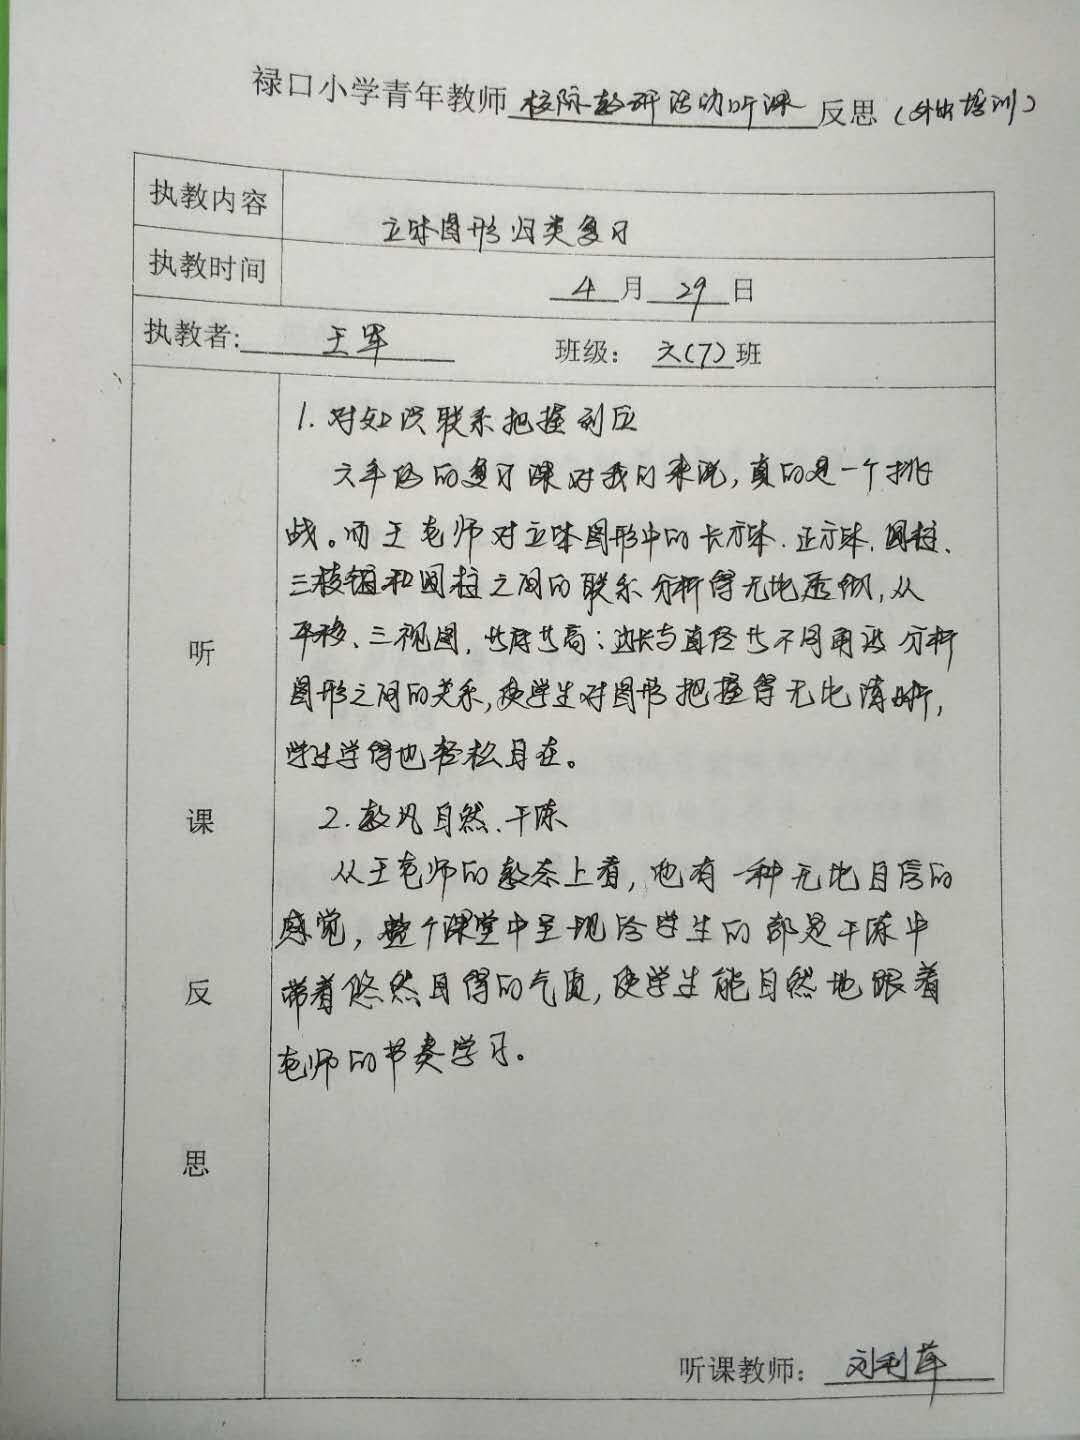 禄口小学青年教师校际教研活动听课反思（外出培训）
执教内容
立体图形归类复习
执教时间
4月29日
执教者:王军 班级：六(7)班
听课反思
1. 对知识联系把握到位
六年级的复习课对我们来说，真的是一个挑
战。而王老师对立体图形中的长方体.正方体.圆柱、
三棱锥和圆柱之间的联系分析得无比透彻，从
平移、三视图，共底共高；边长与直径共不同角度分析
图形之间的关系，使学生对图形把握得无比清晰，
学生学得也轻松自在。
2. 教风自然.干练
从王老师的教态上看，他有一种无比自信的
感觉，整个课堂中呈现给学生的都是干练中
带着悠然自得的气质，使学生能自然地跟着
老师的节奏学习。
听课教师：刘利萍